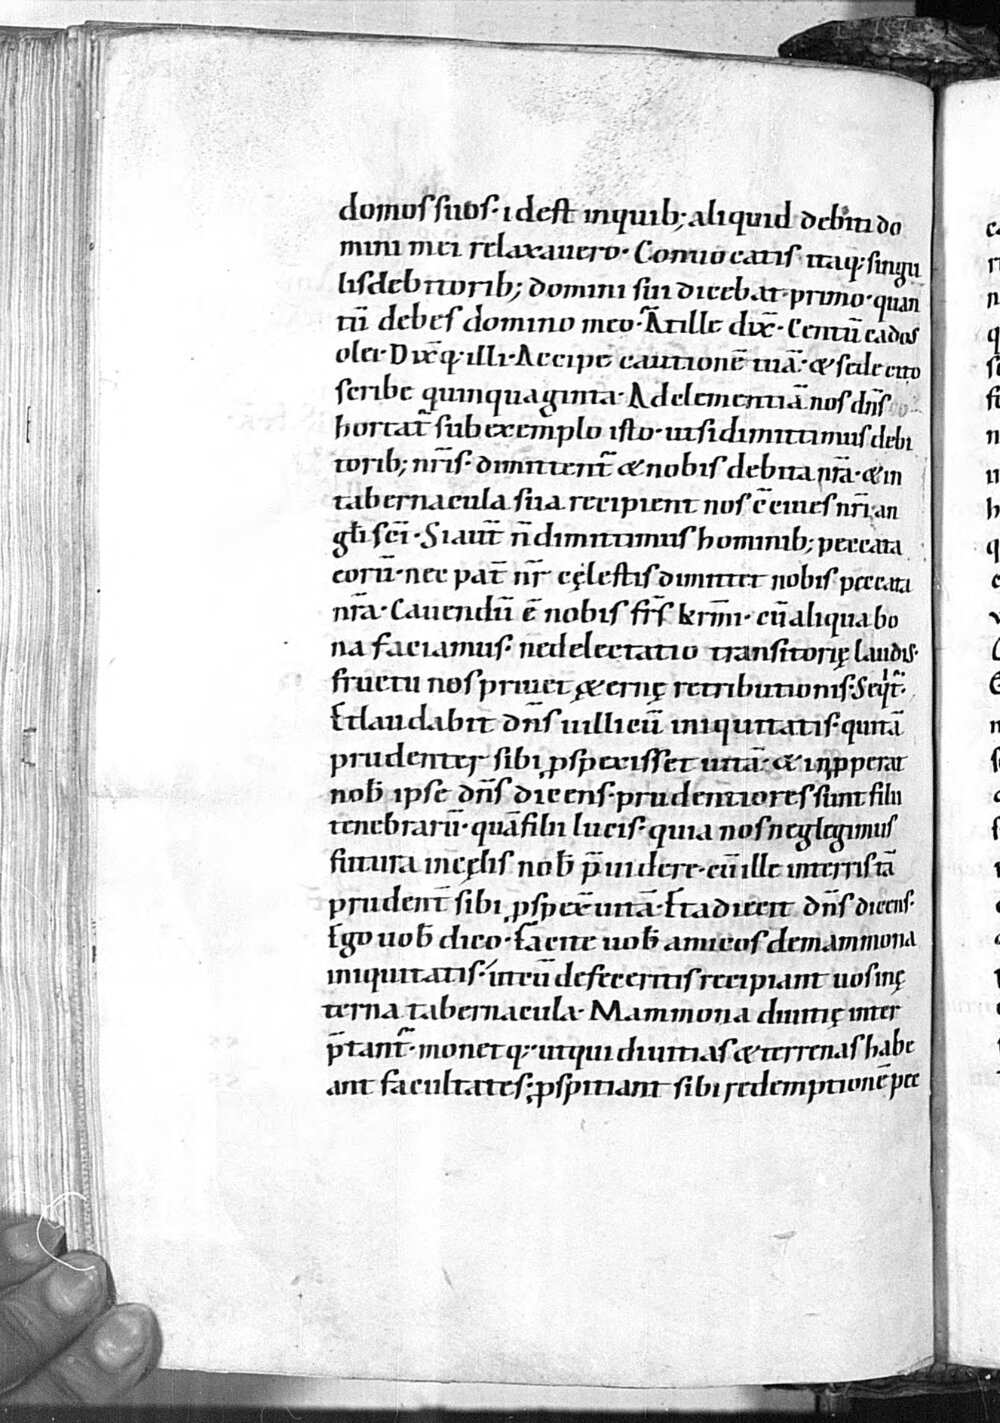 domos suos· id est in quib; aliquid debiti do
mini mei relaxauero· Conuocatis itaq; singu
lis debitorib; domini sui dicebat primo· quan
tū debes domino meo· At ille dix̄· Centū cados
olei· Dix̄q; illi· Accipe cautionē tuā· & sede cito
scribe quinquaginta· Ad clementiā nos dn̄s co
hortat̄ sub exemplo isto· ut si dimittimus debi
torib; nr̄is· dimittent̄ & nobis debita nr̄a· & in
tabernacula sua recipient nos c̄ciues nr̄i an
gl̄i sc̄i· Si aut̄ n̄ dimittimus hominib; peccata
eorū· nec pat̄ nr̄ cęlestis dimittet nobis peccata
nr̄a· Cauendū ē nobis fr̄s kr̄mi· cū aliqua bo
na faciamus· ne delectatio transitorię laudis·
fructu nos priuet ę&ernę retributionis· Seq̄t̄·
Et laudabit dn̄s uillicū iniquitatis· qui tā
prudenter sibi ꝓspexisset uitā· & inꝓperat
nob̄ ipse dn̄s dicens· prudentiores sunt filii
tenebrarū· quā filii lucis· quia nos neglegimus
futura in cęlis nob̄ p̄uidere· cū ille in terris tā
prudent̄ sibi ꝓspex̄ uitā· Et adiecit dn̄s dicens·
Ego uob̄ dico· facite uob̄ amicos de mammona
iniquitatis· ut cū defeceritis recipiant uos in ę
terna tabernacula· Mammona diuitię inter
p̄tant̄· monet q; ut qui diuitias & terrenas habe
ant facultates· ꝓspitiant sibi redemptionē pec